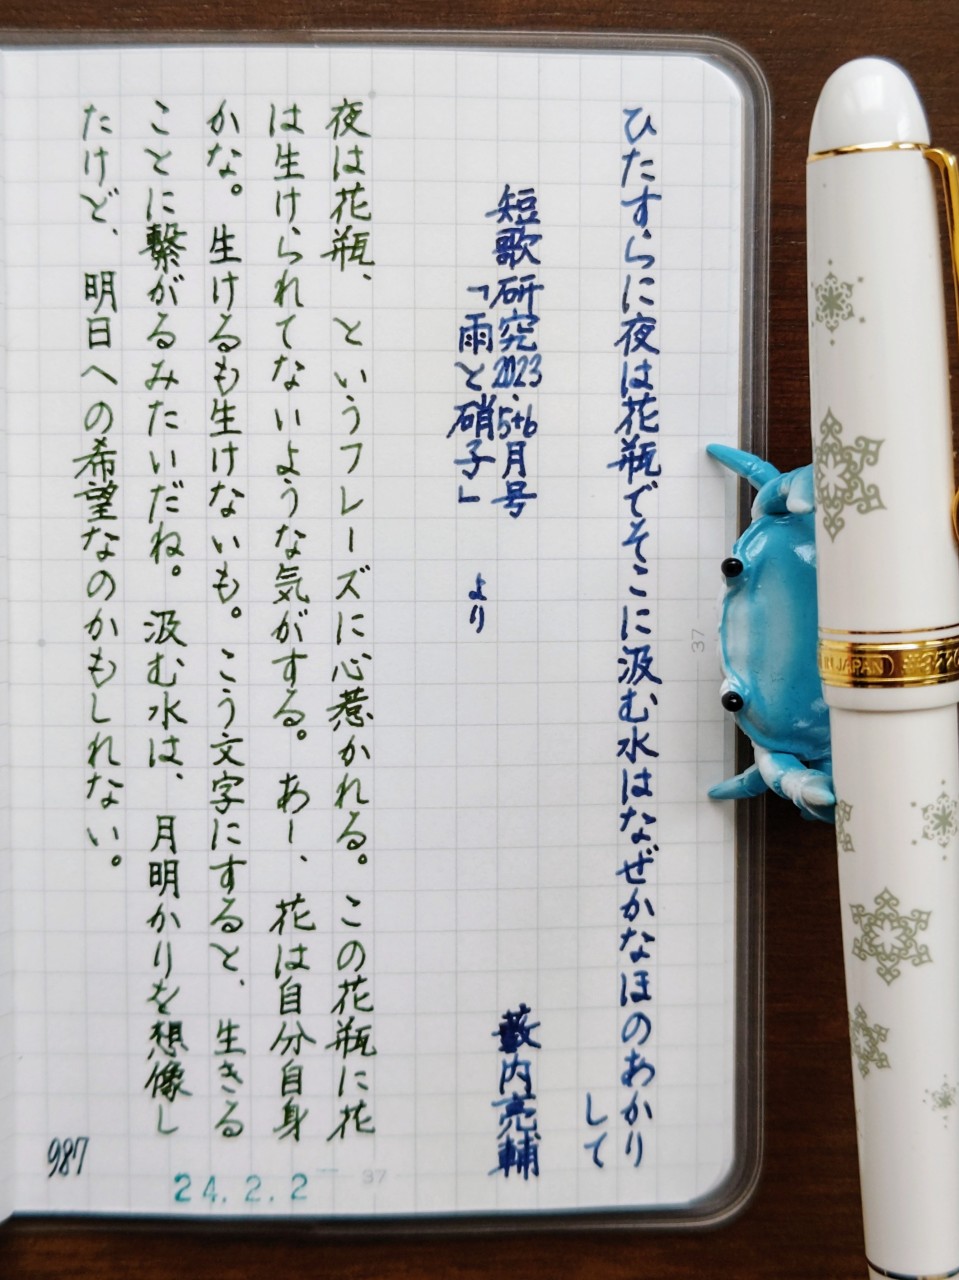 ひたすらに夜は花瓶でそこに汲む水はなぜかなほのあかり
して
短歌研究2023.5+6月号
「雨と硝子」 より
藪内亮輔
夜は花瓶、というフレーズに心惹かれる。この花瓶に花
は生けられてないような気がする。あー、花は自分自身
かな。生けるも生けないも。こう文字にすると、生きる
ことに繋がるみたいだね。汲む水は、月明かりを想像し
たけど、明日への希望なのかもしれない。
987
24.2.2
37
37
JAPAN